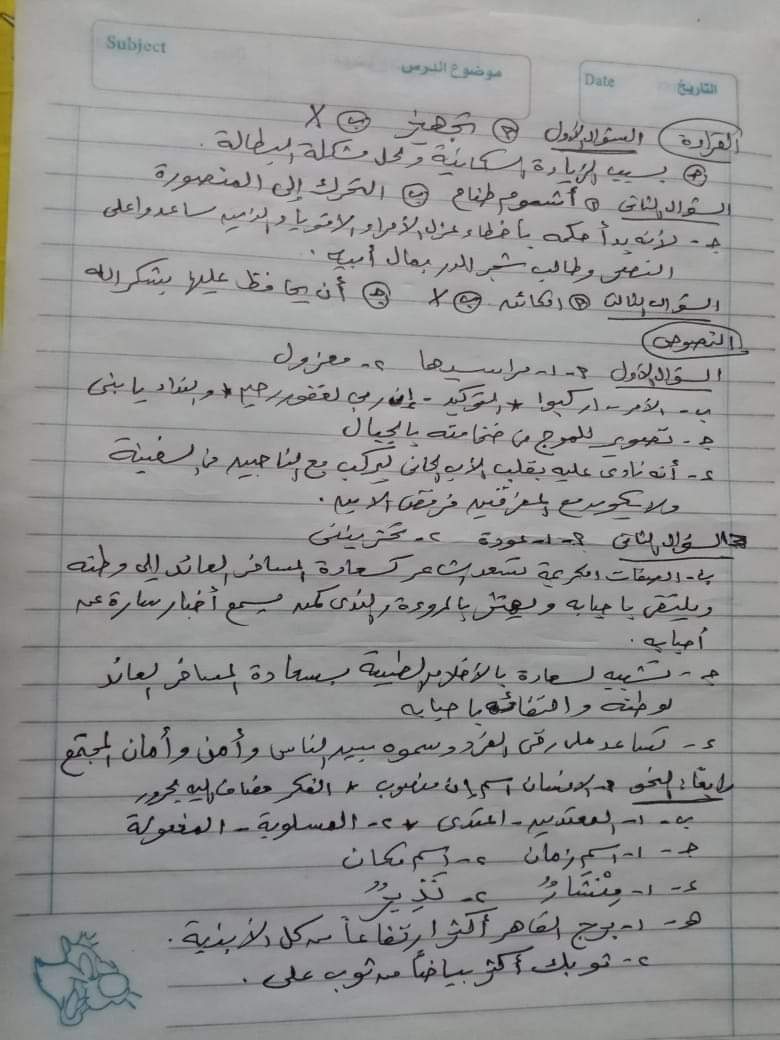 Subject
موضوع الدرس
Date التاريخ
القراءة السؤال الأول أ تجهيز ب X
ج بسبب الزيادة السكانية ولحل مشكلة البطالة .
السؤال الثاني أ أشموم طناح ب التحرك إلى المنصورة
ج - لأنه بدأ حكمه بأخطاء عزل الأمراء الأقوياء والذين ساعدوا على
النصر وطالب شجر الدر بمال أبيه .
السؤال الثالث أ ب X ج أن يحافظ عليها بشكر الله
النصوص
السؤال الأول أ - ١ - مراسيها ٢ - معزول
ب - الأمر - اركبوا * التوكيد - إن ربي لغفور رحيم * والنداء يا بنى
ج - تصوير للموج من ضخامته بالجبال
د - أنه نادى عليه بقلب الأب الحانى ليركب مع الناجين فى السفينة
ولا يكون مع المغرقين
السؤال الثاني أ - ١ - عودة ٢ -
ب - الصفات الكريمة تسعد الشاعر كسعادة المسافر العائد إلى وطنه
ويلتقى بأحبابه ويهتز بالمروءة والندى كمن يسمع أخبار سارة عن
أحبابه .
ج - تشبيه لسعادة بالأخلاق الطيبة بسعادة المسافر العائد
لوطنه والتقائه بأحبابه
د - تساعد على رقى الفرد وسموه بين الناس وأمن وأمان المجتمع
رابعًا: النحو أ - الإنسان اسم إن منصوب * الفكر مضاف إليه مجرور
ب - ١ - المعتدين - اعتدى * ٢ - المسلوبة - المفعولة
ج - ١ - اسم زمان ٢ - اسم مكان
د - ١ - مِنْشَارٌ ٢ - نَذِيرٌ
هـ - ١ - برج القاهرة أكثر ارتفاعاً من كل الأبنية .
٢ - ثوبك أكثر بياضاً من ثوب على .